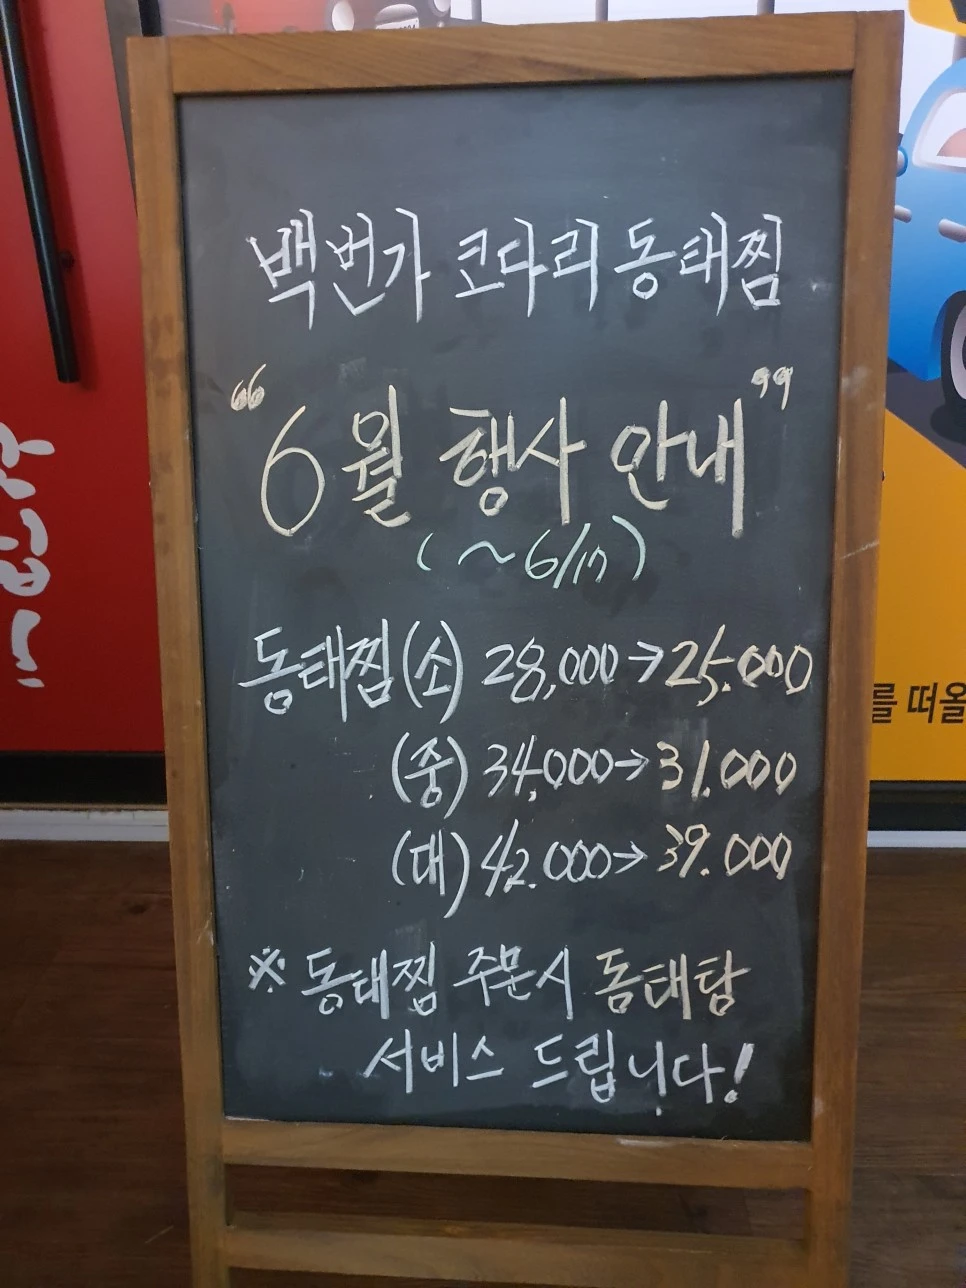 백번가 코다리 동태찜
“6월 행사 안내”
(~6/17)
동태찜(소) 28,000→25.000
(중) 34,000→31.000
(대) 42.000→39.000
※ 동태찜 주문시 동태탕
서비스 드립니다!
를 떠올